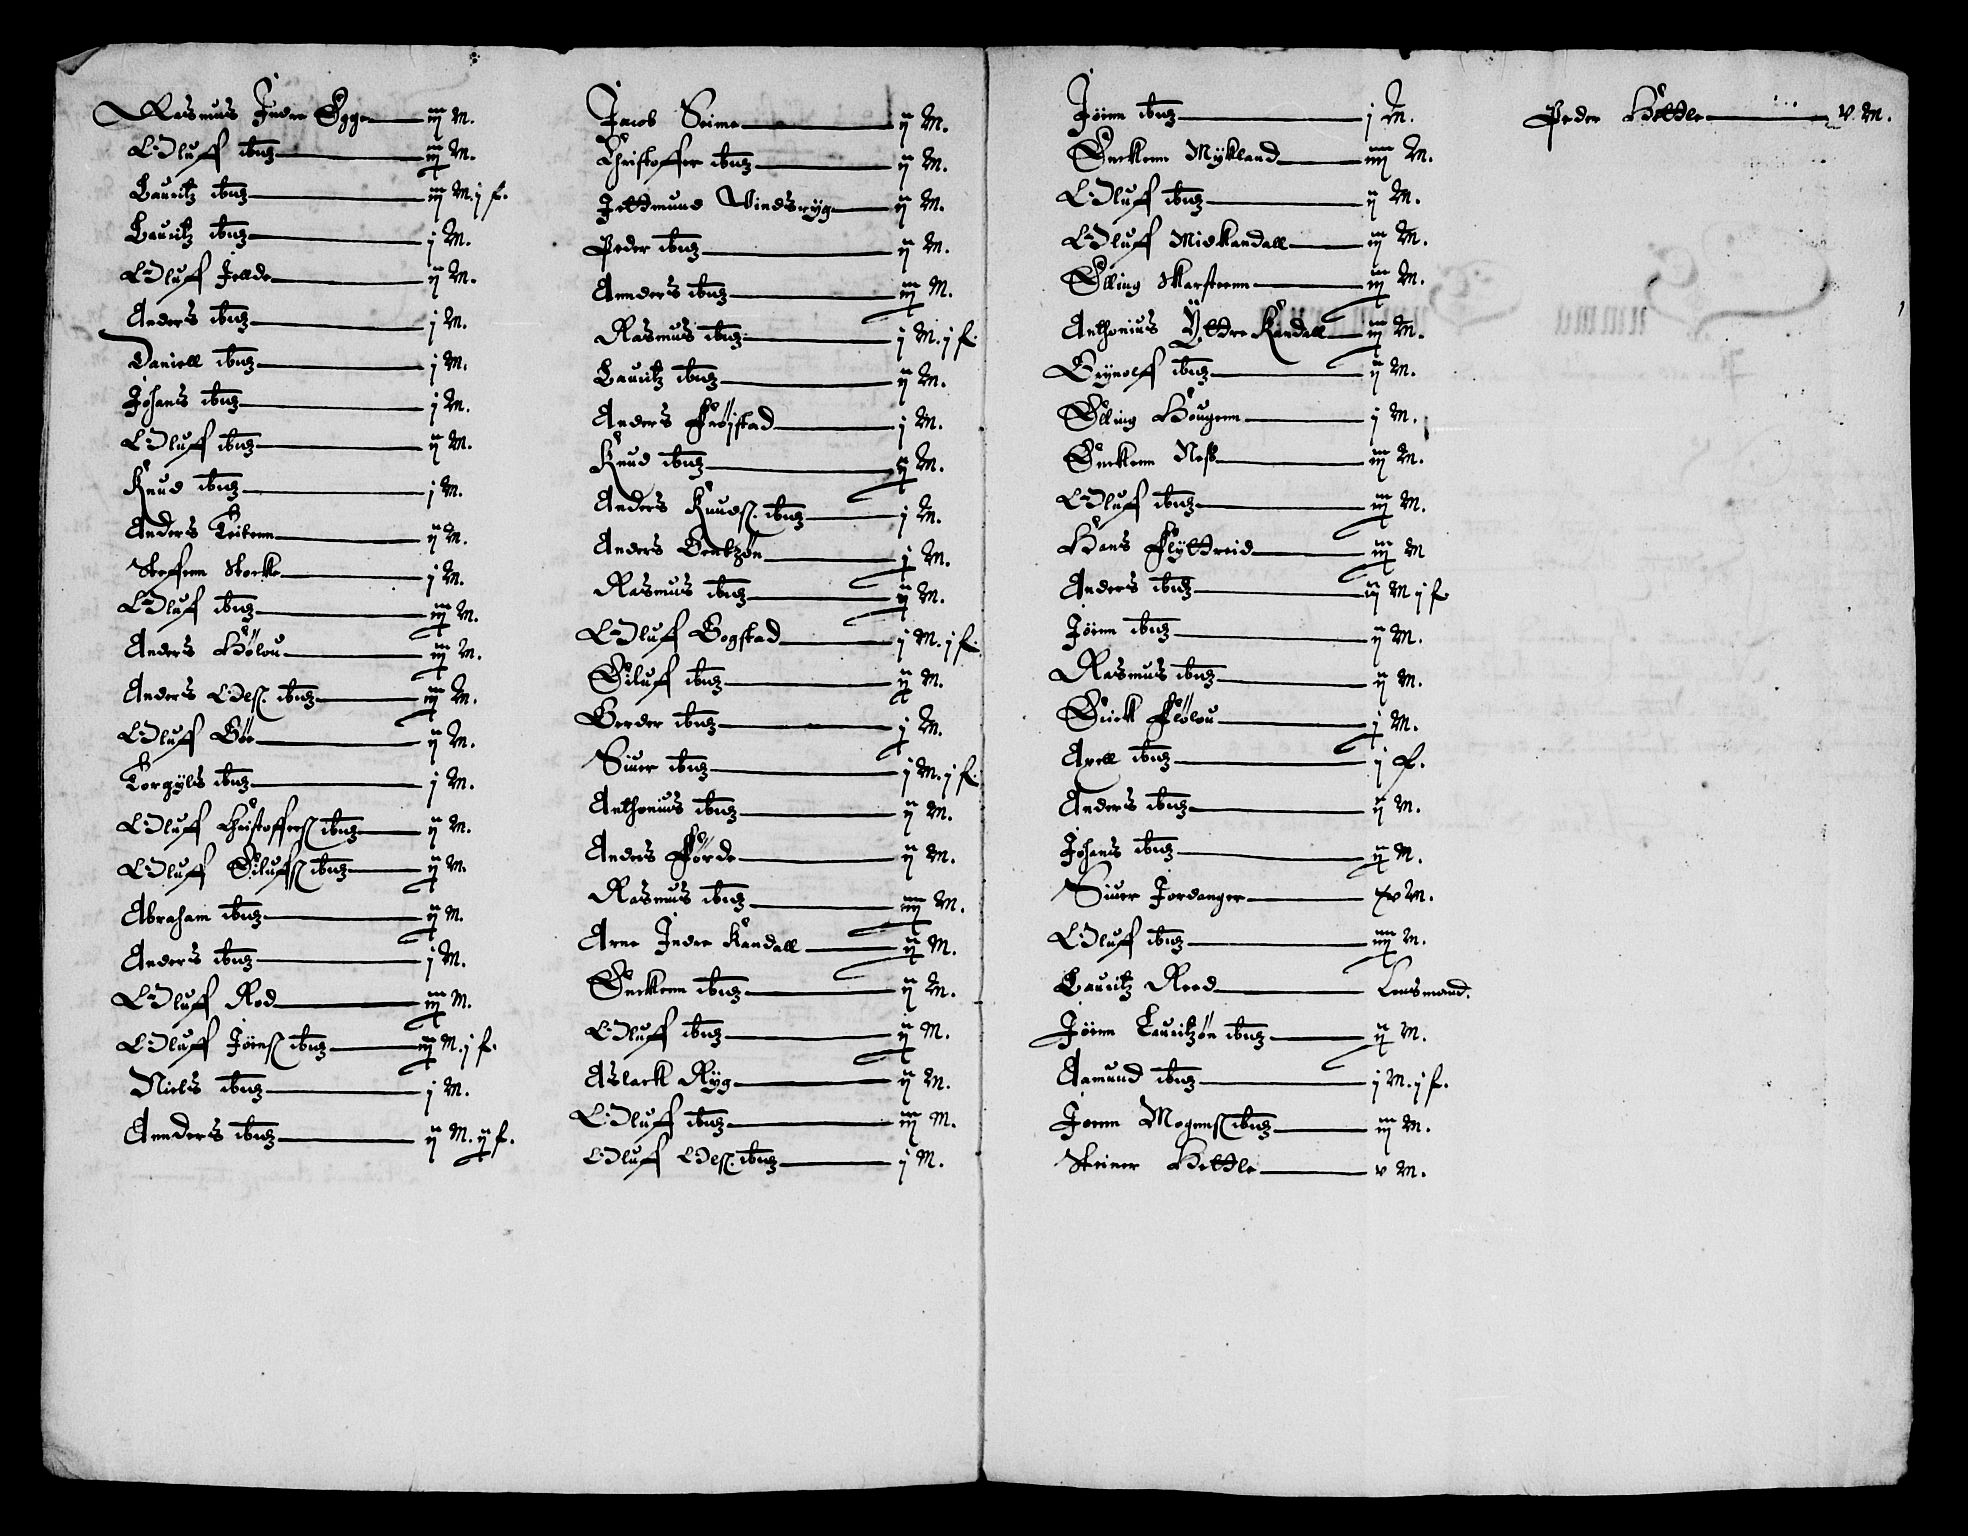 Rasmus Indre Egge iij M.
Oluff ibid iij M.
Lauritz ibid iij M. j f.
Lauritz ibid j M.
Oluff Jellde ij M.
Anders ibid j M.
Daniell ibid j M.
Johans ibid j M.
Oluff ibid ij M.
Knud ibid j M.
Anders Teitenn ij M.
Steffenn Storke j M.
Oluff ibid iij M.
Anders Hólou iij M.
Anders Olß. ibid iij M.
Oluff Böe ij M.
Torgyls ibid j M.
Oluff Christofferß ibid ij M.
Oluff Eiluffß ibid ij M.
Abraham ibid ij M.
Anders ibid j M.
Oluff Rod iij M.
Oluff Jörnß ibid M. j f.
Niels ibid j M.
Annders ibid ij M. ij f.
Jacob Seime ij M.
Christoffer ibid ij M.
Jettmund Vindsryg ij M.
Peder ibid ij M.
Annders ibid iij M.
Rasmus ibid j M. j f.
Lauritz ibid ij M.
Anders Fröistad j M.
Knud ibid ij M.
Anders Knudß. ibid j M.
Anders Bentzön j M.
Rasmus ibid ij M.
Oluff Bogstad j M. j f.
Eiluff ibid ij M.
Gerder ibid j M.
Siuer ibid j M. j f.
Anthonius ibid ij M.
Anders Förde ij M.
Rasmus ibid iiij M.
Arne Indre Kandall ij M.
Enckenn ibid ij M.
Oluff ibid ij M.
Aslack Ryg ij M.
Oluff ibid iij M.
Oluff Olß. ibid j M.
Jörnn ibid j M.
Enckenn Mykland iiij M.
Oluff ibid ij M.
Oluff Midkandall iij M.
Elling Skarsteenn iij M.
Anthonius Yttre Kandall iij M.
Brynolff ibid ij M.
Elling Hougenn j M.
Enckenn Neß iij M.
Oluff ibid iij M.
Hans Flyttreid iij M
Anders ibid M j f
Jörnn ibid ij M.
Rasmus ibid ij M.
Erick Flólou j M.
Axell ibid j f.
Anders ibid ij M.
Johans ibid ij M.
Siuer Jordanger xv M.
Oluff ibid iiij M.
Lauritz Reed Lensmand.
Jörnn Lauritzön ibid ij M.
Aamund ibid j M. j f.
Joenn Mogensß ibid iij M.
Steiner Hettle v M.
Peder Hettle v M.